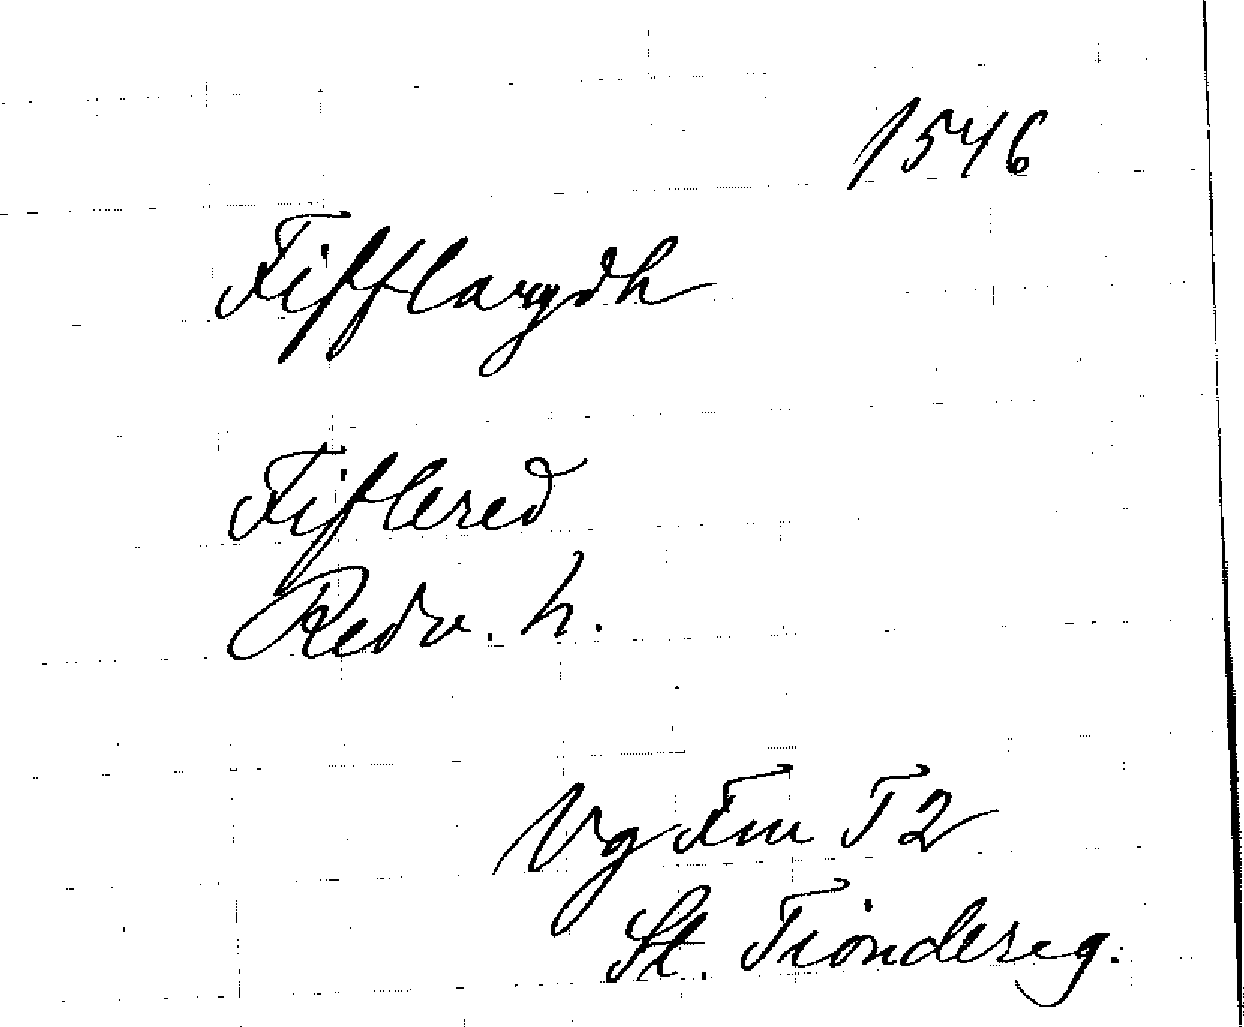 1546
Fifflarydh
Fiflered
Redv. h.
Vg Fin T2
St. Tiondereg.